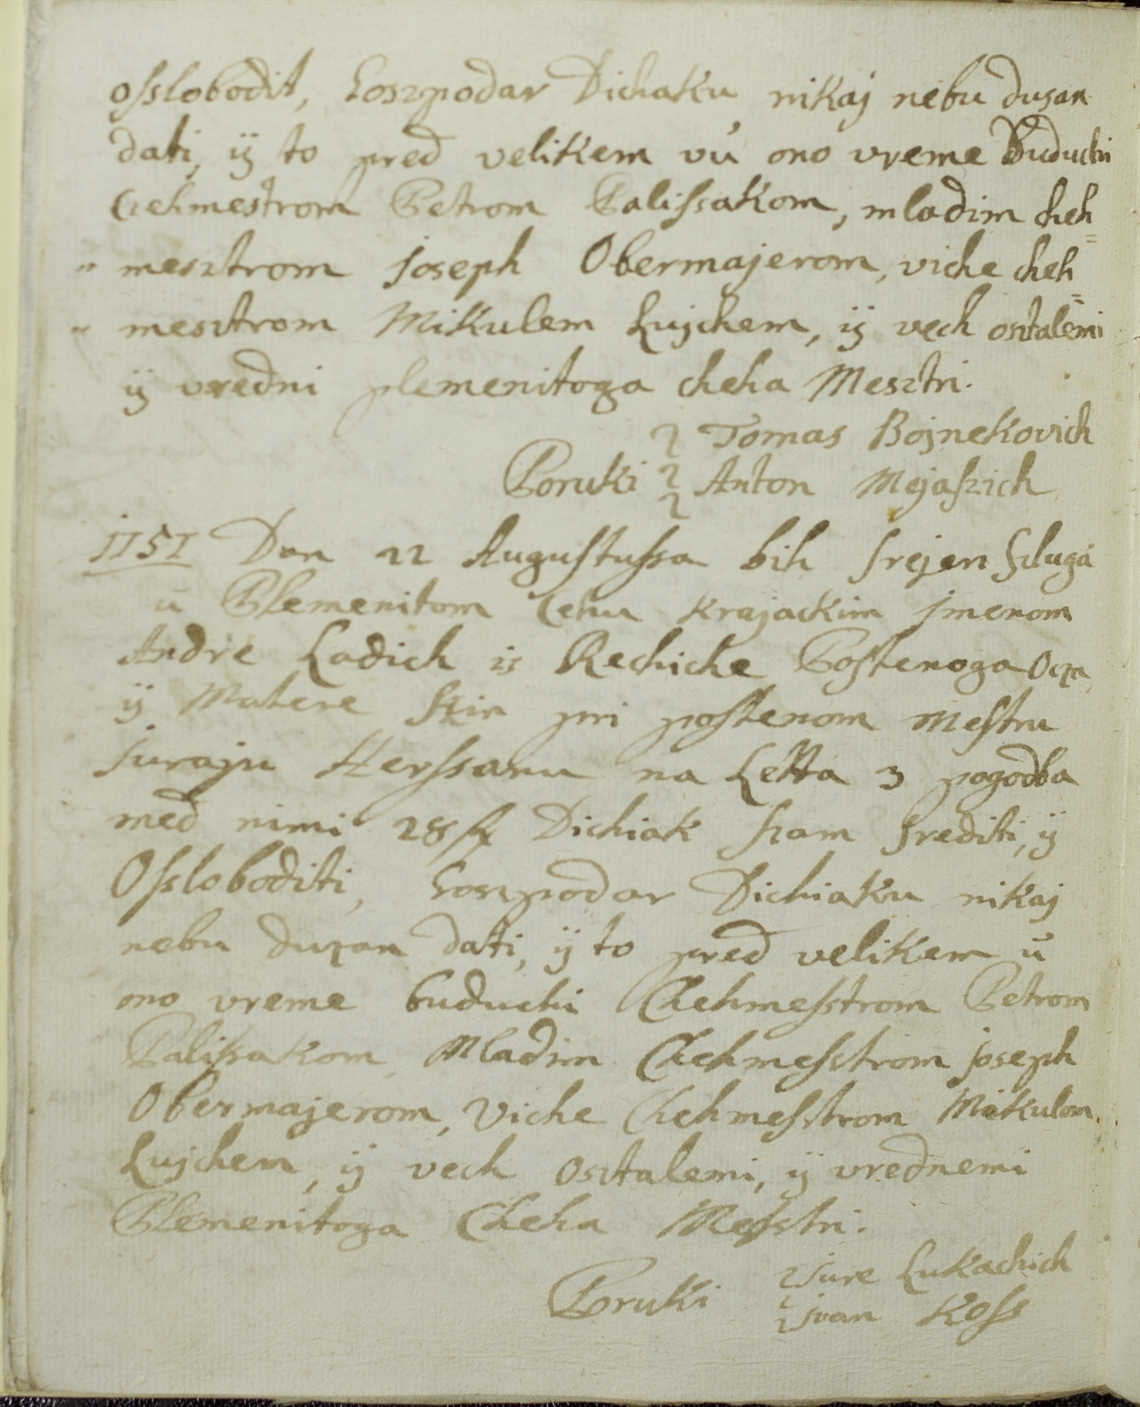 osslobodit, Goszpodar Dichaku nikaj nebu dusan
dati, ÿ to pred velikem vu ono vreme Buduchi
Czehmestrom Petrom Palissakom, mladim cheh=
" mesztrom Joseph Obermajerom, viche cheh=
" mesztrom Mikulem Lujchem, ÿ vech osztalemi
ÿ vredni plemenitoga cheha Mesztri.
Tomas Bojnekovich
Poruki Anton Mejaszich
1751 Dan 22 Augustussa bih Srejen Szluga
u Plemenitom Cehu Krajackim Jmenom
Andre Ladich is Rechiche Postenoga Ocza
ÿ Matere Szin pri postenom Mestru
Juraju Herssanu na Letta 3 pogodba
med nimi 28 f Dichiak szam Srediti, ÿ
Ossloboditi, Goszpodar Dichiaku nikaj
nebu duzan datti, ÿ to pred velikem ü
ono vreme buduchi Chehmesstrom Petrom
Palissakom Mladim Chehmesstrom Joseph
Obermajerom, Viche Chehmesstrom Mikulom
Lujchem, ÿ vech Osztalemi, ÿ vrednemi
Plemenitoga Cheha Messtri.
Jure Lukachich
Poruki Jvan Koss